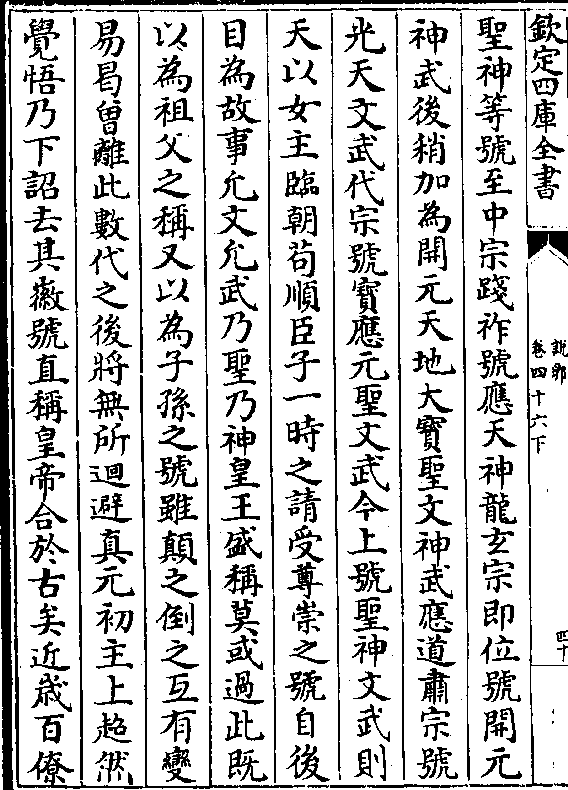 欽定四庫全書
說郛
卷四十六下
四十
聖神等號至中宗踐祚號應天神龍玄宗即位號開元
神武後稍加為開元天地大寶聖文神武應道肅宗號
光天文武代宗號寶應元聖文武今上號聖神文武則
天以女主臨朝苟順臣子一時之請受尊崇之號自後
目為故事允文允武乃聖乃神皇王盛稱莫或過此既
以為祖父之稱又以為子孫之號雖顛之倒之互有變
易曷曾離此數代之後將無所迴避真元初主上超然
覺悟乃下詔去其徽號直稱皇帝合於古矣近歲百僚